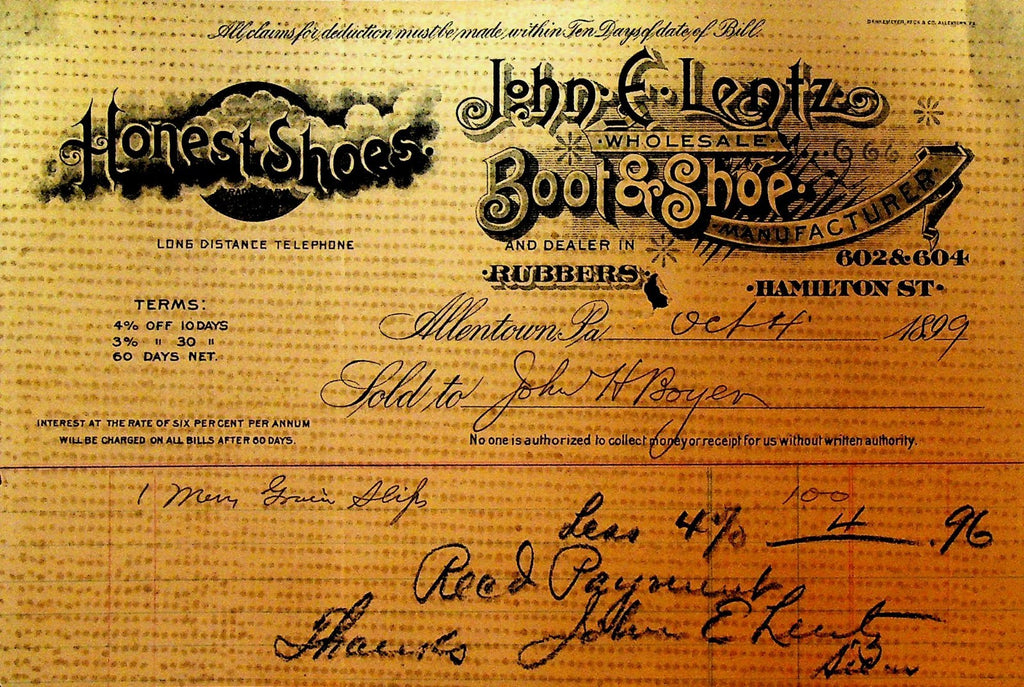 All claims for deduction must be made within Ten Days of date of Bill.
Honest Shoes.
TRADE MARK
LONG DISTANCE TELEPHONE
John. E. Lentz
WHOLESALE
Boot & Shoe.
MANUFACTURER
AND DEALER IN
RUBBERS
602 & 604
HAMILTON ST.
TERMS:
4% OFF 10 DAYS
3% " 30 "
60 DAYS NET.
Allentown, Pa. Oct 4 1899
Sold to John H Boyer
INTEREST AT THE RATE OF SIX PER CENT PER ANNUM
WILL BE CHARGED ON ALL BILLS AFTER 60 DAYS.
No one is authorized to collect money or receipt for us without written authority.
1 Mens Grain Slips 100
Less 4% 4 .96
Recd Payment
Thanks John E Lentz